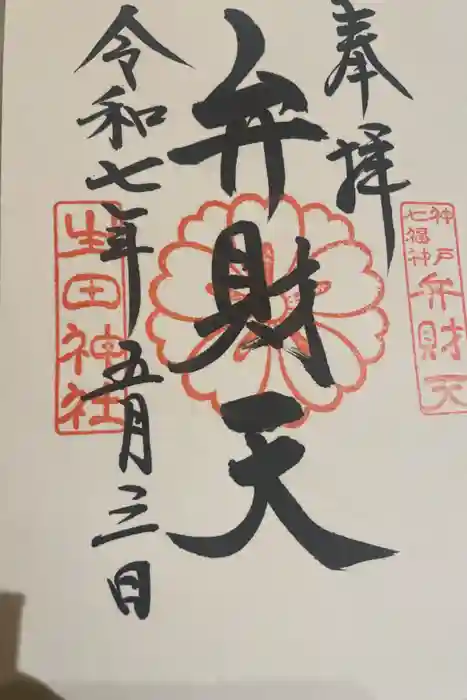 奉拝
神戸
七福神
弁財天
弁財天
令和七年五月三日
生田神社